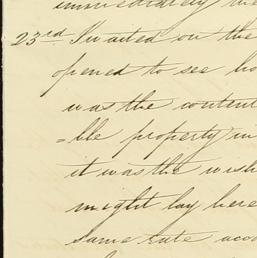 immediately the
23rd I waited on the
opened to see ho
was the content
=ble property in
it was the wish
might lay here
same rate acco